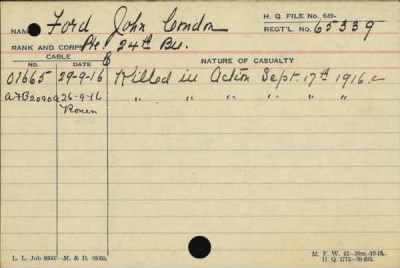 NAME Ford John Condon
H. Q. FILE No. 649-
REGT'L. No. 65339
RANK AND CORPS Pte. 24th Bn.
CABLE
NATURE OF CASUALTY
NO. DATE
01665 29-9-16 Killed in Action Sept. 17th 1916.
26-9-16 " " " " " "
Rouen
L. L. Job 8600—M. & D.
M. F. W. 42—50m.
H. Q. 1772-39-893.